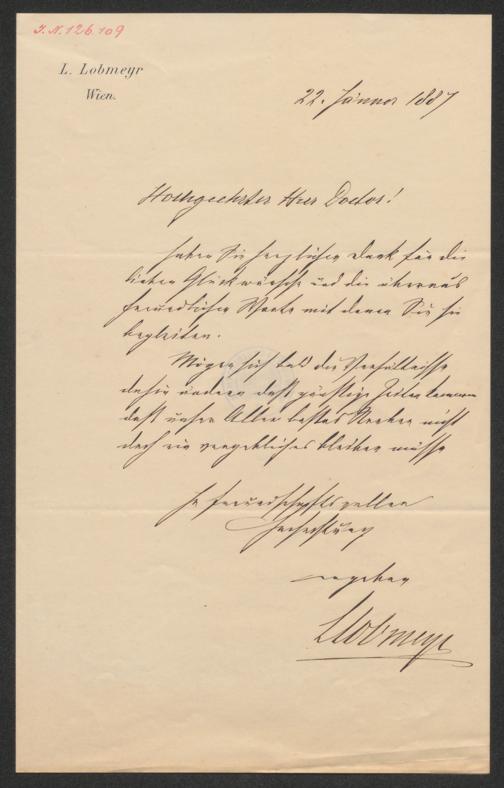 I. N. 126.109
L. Lobmeyr
Wien.
22. Jänner 1887
Hochgeehrter Herr Doctor!
haben Sie herzlichen Dank für die
lieben Glückwünsche und die überaus
freundlichen Worte mit denen Sie sie
begleiten.
Mögen sich bald die Verhältnisse
dahin ändern daß günstige Zeiten kommen
daß unser Aller bestes Streben nicht
doch ein vergebliches bleiben müsse
In freundschaftsvollen
Hochachtung
ergeben
LLobmeyr